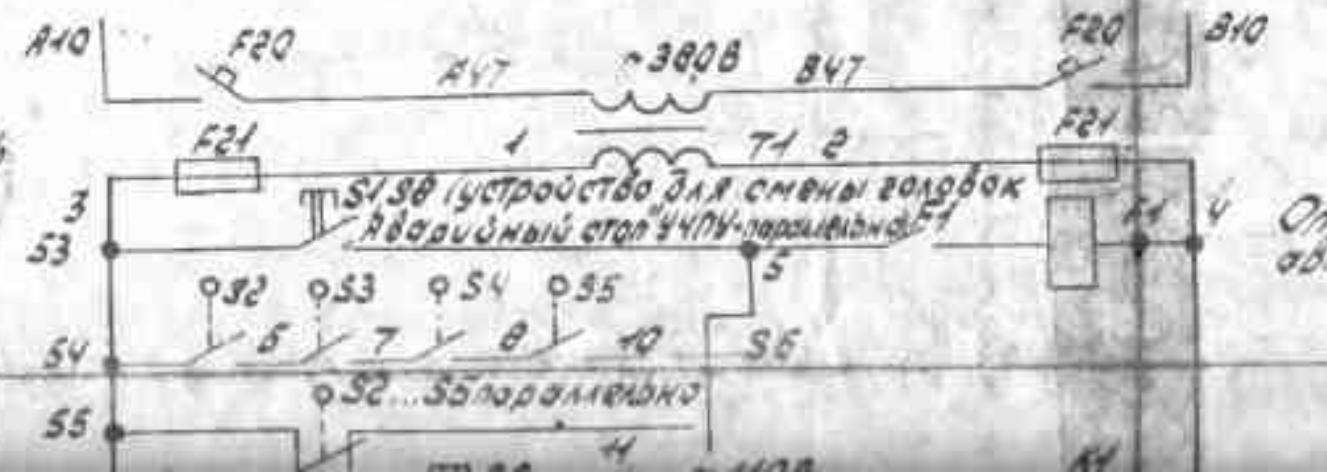 A10 F20 A47 ~380В B47 F20 B10
F21 1 T1 2 F21
3 S1 S8 (устройство для смены головок
53 Аварийный стоп "УЧПУ-параллельно F1 F1 4
5
S2 S3 S4 S5
54 6 7 8 10 S6
S2...S5 параллельно
55 11